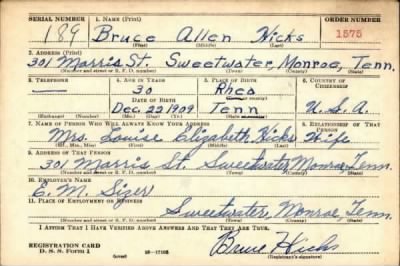 SERIAL NUMBER 1. NAME (Print) ORDER NUMBER
189 Bruce Allen Hicks 1575
(First) (Middle) (Last)
2. ADDRESS (Print)
301 Morris St. Sweetwater, Monroe, Tenn.
(Number and street or R. F. D. number) (Town) (County) (State)
3. TELEPHONE 4. AGE IN YEARS 5. PLACE OF BIRTH 6. COUNTRY OF CITIZENSHIP
— 30 Rhea
DATE OF BIRTH (Town or county)
Dec. 22 1909 Tenn U.S.A.
(Exchange) (Number) (Mo.) (Day) (Yr.) (State or country)
7. NAME OF PERSON WHO WILL ALWAYS KNOW YOUR ADDRESS 8. RELATIONSHIP OF THAT PERSON
Mrs. Louise Elizabeth Hicks Wife
(Mr., Mrs., Miss) (First) (Middle) (Last)
9. ADDRESS OF THAT PERSON
301 Morris St. Sweetwater Monroe, Tenn.
(Number and street or R. F. D. number) (Town) (County) (State)
10. EMPLOYER'S NAME
E. M. Sizer
11. PLACE OF EMPLOYMENT OR BUSINESS
Sweetwater, Monroe, Tenn.
(Number and street or R. F. D. number) (Town) (County) (State)
I AFFIRM THAT I HAVE VERIFIED ABOVE ANSWERS AND THAT THEY ARE TRUE.
REGISTRATION CARD
D. S. S. Form 1 (over) 16—17105 Bruce Hicks
(Registrant's signature)